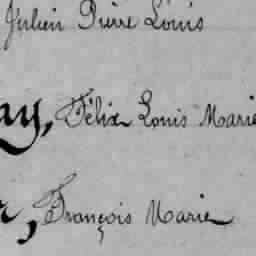 Julien Pierre Louis
ay, Félix Louis Marie
r, François Marie